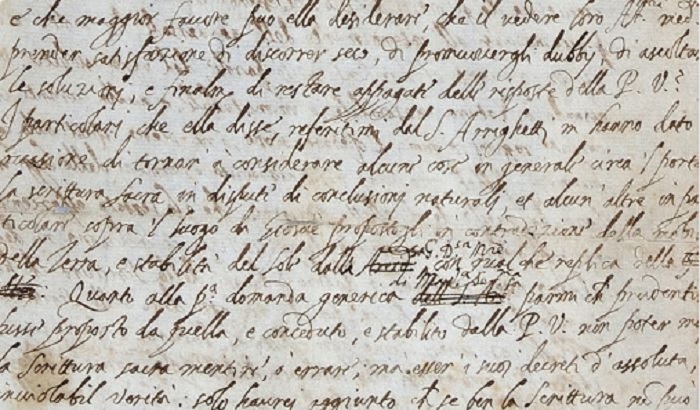 e che maggior favore puo ella desiderare, che il vedere loro Alt.ze med
prender satisfazione di discorrer seco, di promuovergli dubbij, di ascolta
le soluzioni, e finalm.e di restare appagate delle risposte della P. V.?
I particolari che ella disse, referitimi dal S. Arrighetti m hanno dato
occasione di tornar a considerare alcune cose in generale circa 'l portar
la scrittura sacra in dispute di conclusioni naturali, et alcun' altre in par
ticolare sopra 'l luogo di Giosuè propostoli in contradizione della mobi
della Terra, e stabilità del Sole dalla con qualche replica della
Quanto alla p.a domanda generica di parmi ch prudent
fusse proposto da quella, e conceduto, e stabilito dalla P. V. non poter ma
la Scrittura sacra mentire, ò errare, ma esser i suoi decreti d'assoluta,
inviolabil verità: solo haurei aggiunto, ch se ben la Scrittura nō puo